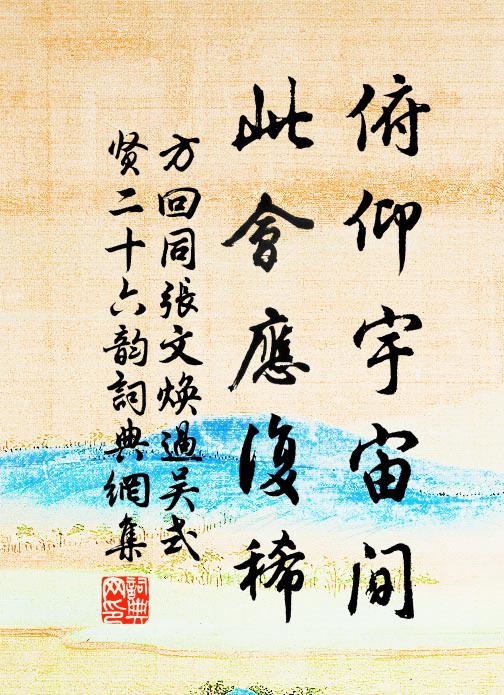 俯仰宇宙间
此會應復稀
方回同張文煥過吴式
贤二十六韵詞典網集